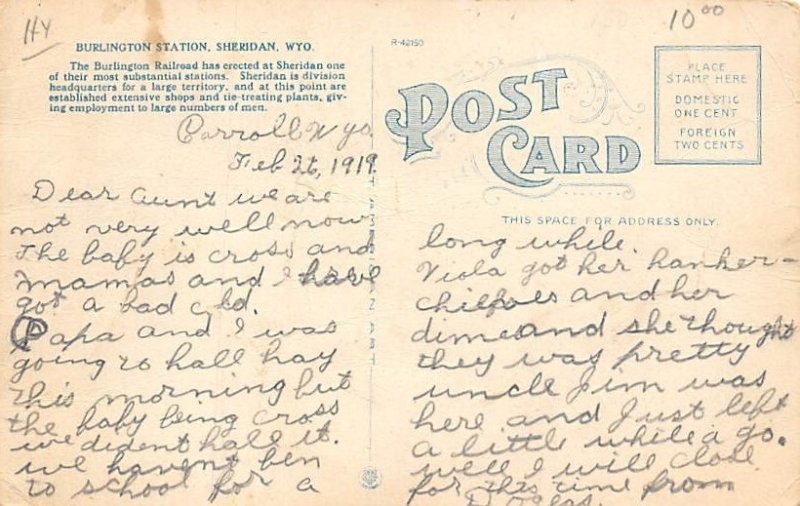 HY
10 00
BURLINGTON STATION, SHERIDAN, WYO.
The Burlington Railroad has erected at Sheridan one
of their most substantial stations. Sheridan is division
headquarters for a large territory, and at this point are
established extensive shops and tie-treating plants, giv-
ing employment to large numbers of men.
R-42150
POST
CARD
PLACE
STAMP HERE
DOMESTIC
ONE CENT
FOREIGN
TWO CENTS
THIS SPACE FOR ADDRESS ONLY.
Carroll Wyo
Feb 26, 1919
Dear aunt we are
not very well now
The baby is cross and
mamas and I have
got a bad cold.
Papa and I was
going to hall hay
this morning but
the baby being cross
we dident hall it.
we havent ben
to school for a
long while.
Viola got her hanker-
chiefes and her
dime and she thought
they was pretty
uncle Jim was
here and Just left
a little while a go.
well I will close
for this time from